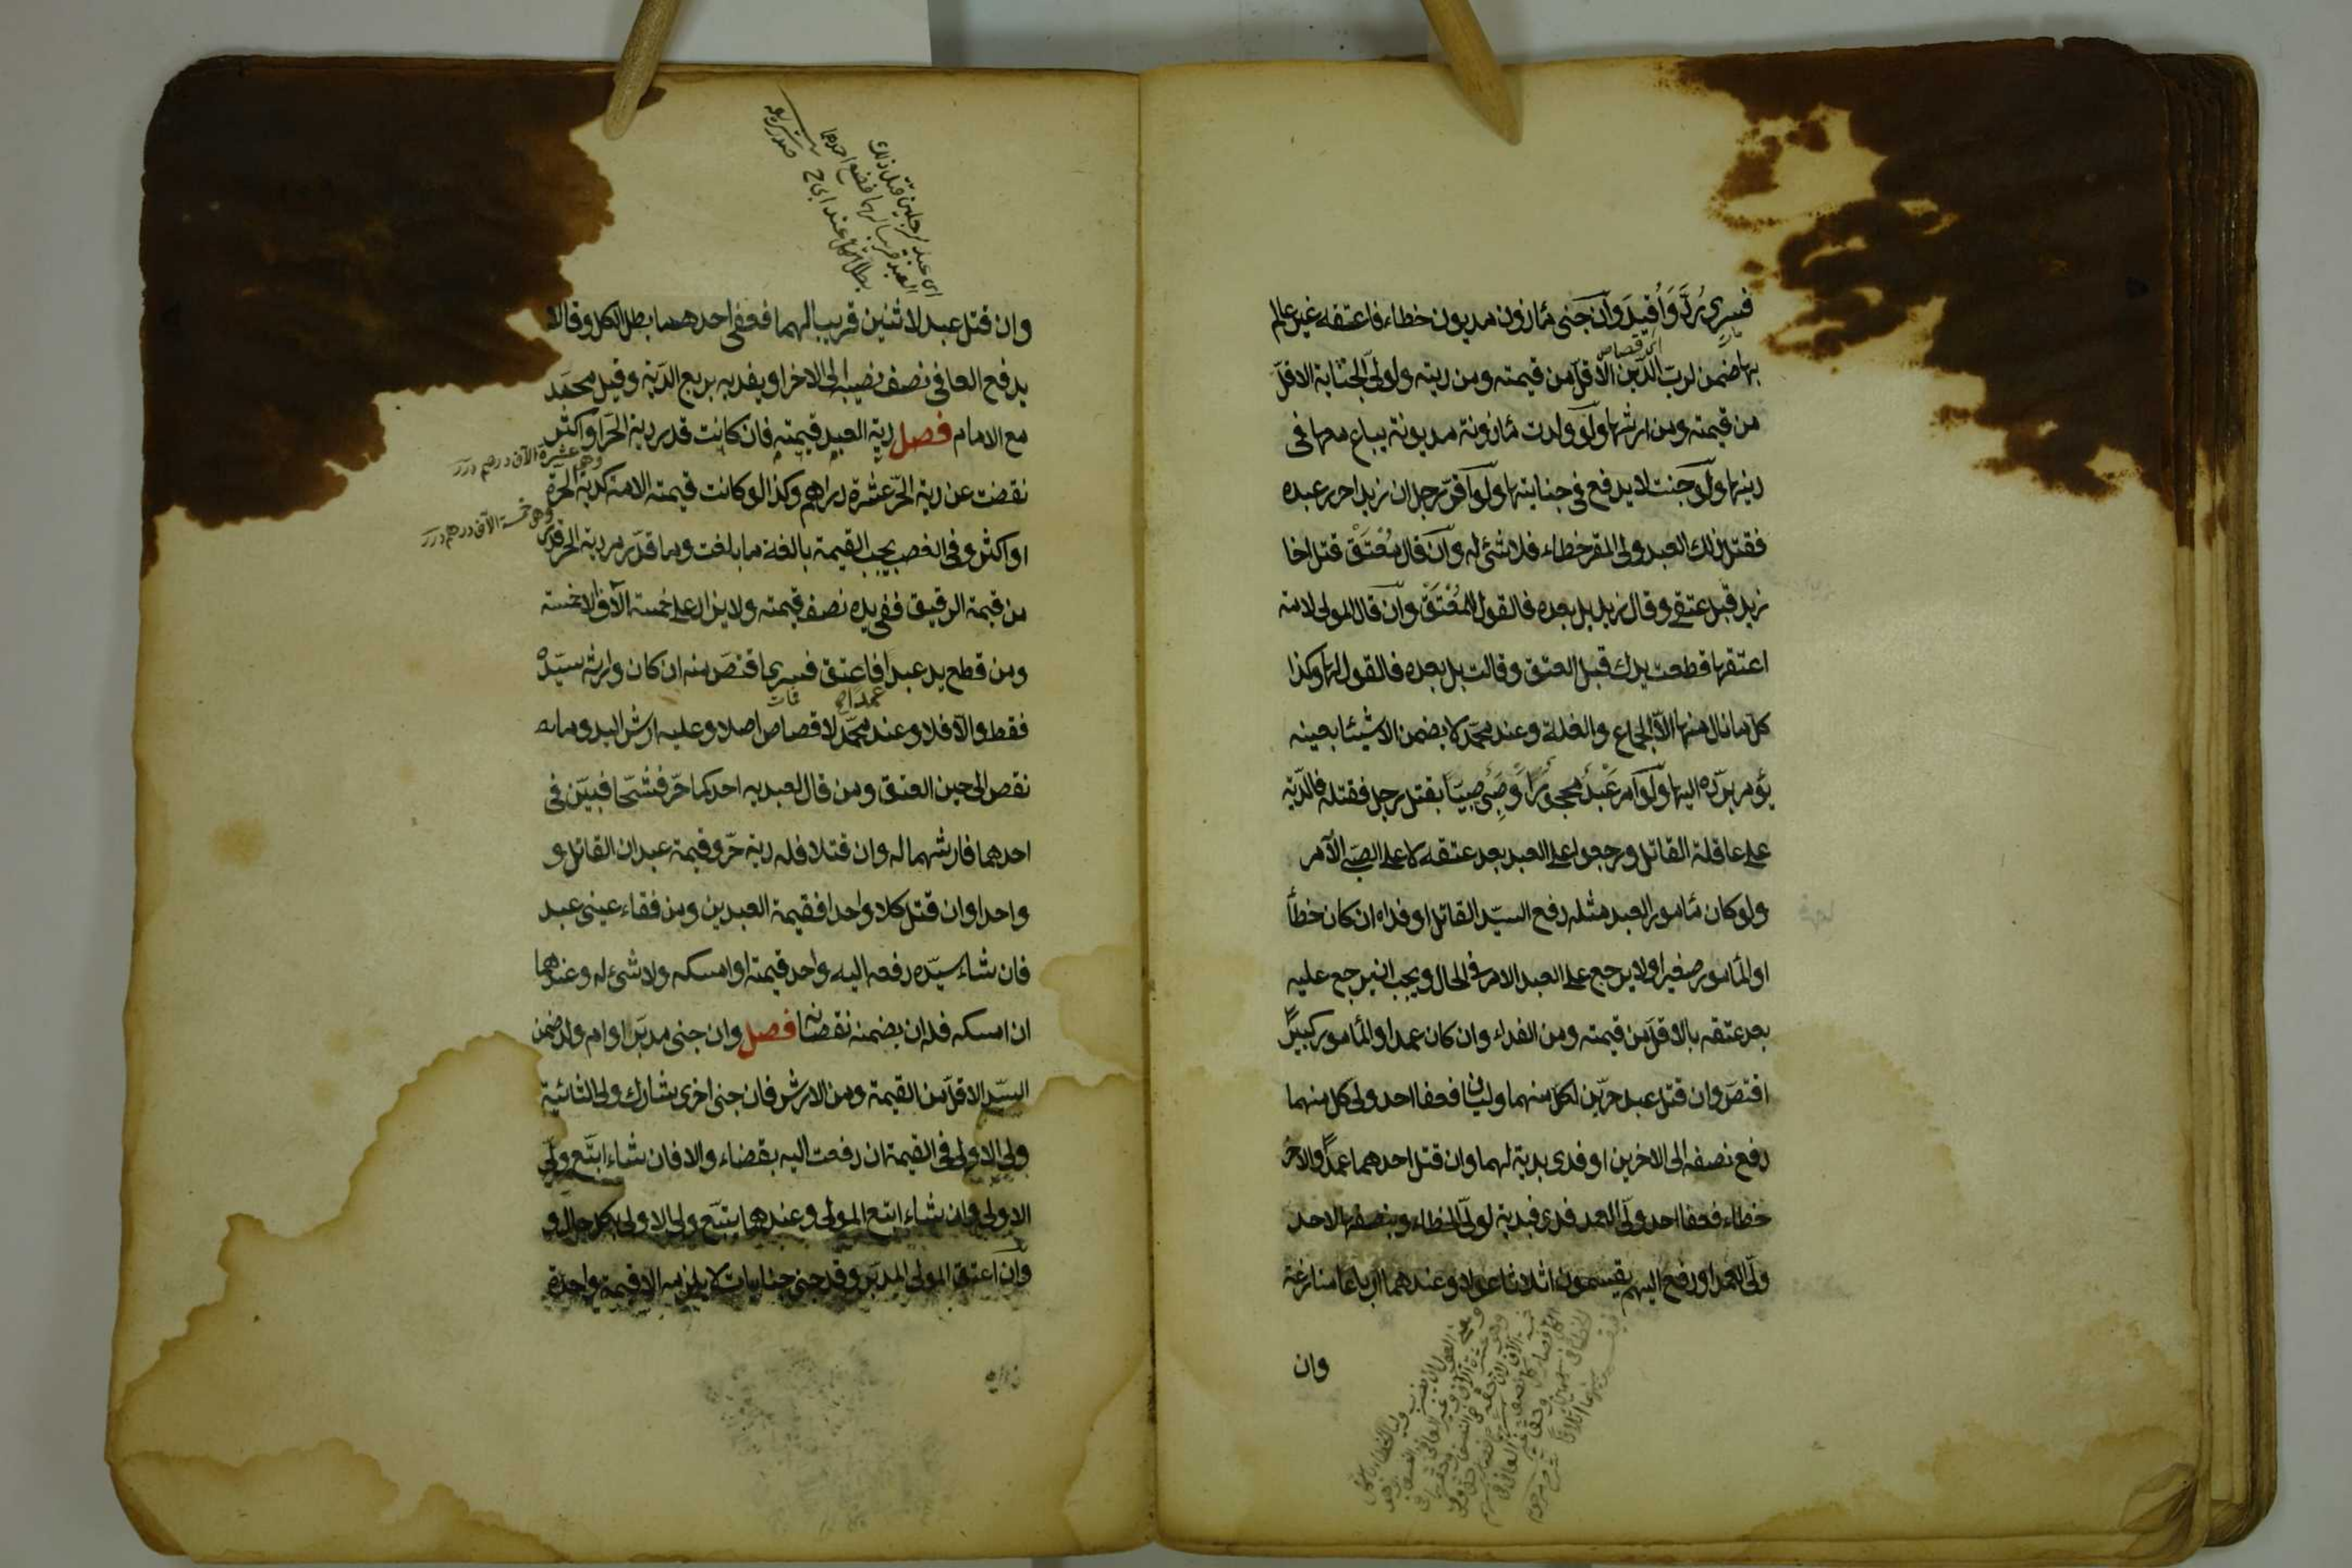 فسرى يُردَّ وَأُقيدَ وان جَنى مأذون مديون خطاء فاعتقه غير عالم
بها ضمن لربّ الدَّين الاقلّ من قيمته ومن دينه ولولىّ الجناية الاقلّ
من قيمته ومن ارشها ولو ولدت مأذونة مديونة يباع معها فى
دينها ولو جنت لا يدفع فى جنايتها ولو اقرّ رجل ان زيدا حرر عبده
فقتل ذلك العبد ولى المقر خطاء فلا شئ له وان قال مُعْتَق قتل اخا
زيد قبل عتقى وقال زيد بل بعده فالقول للمُعْتَق وان قال المولى لامته
اعتقها قطعت يدك قبل العتق وقالت بل بعده فالقول لها وكذا
كل ما نال منها الا الجماع والغلة وعند محمّد لا يضمن الا شيئا بعينه
يؤمر بردّه اليها ولو امر عَبْد محجور او صَبِى صبيّا بقتل رجل فقتله فالدّية
على عاقلة القاتل ورجعوا على العبد بعد عتقه لا على الصبى الآمر
ولو كان مأمور العبد مثله دفع السيّد القاتل او فداه ان كان خطأ
او المأمور صغيرا ولا يرجع على العبد الامر فى الحال ويجب ان يرجع عليه
بعد عتقه بالاقلّ من قيمته ومن الفداء وان كان عمدا والمأمور كبيرًا
اقتصّ وان قتل عبد حرّين لكل منهما وليان فعفا احد ولى كل منهما
دفع نصفه الى الاخرين او فدى بدية لهما وان قتل احدهما عمدًا والاخر
خطاء فعفا احد ولىّ العمد فدى بدية لولىّ الخطاء وبنصفها لاحد
ولىّ العمد او دفع اليهم يقسمون اثلاثا عولا وعندهما ارباعا منازعة
وان
اى عبد لرجلين قتل ذلك
العبد قريبا لهما فعفى احدهما
بطل الكل عند ابى ح
صدر شريعه
وان قتل عبد لاثنين قريبا لهما فعفى احدهما بطل الكل وقالا
يدفع العافى نصف نصيبه الى الاخر او يفديه بربع الدّية وقيل محمّد
مع الامام فصل دية العبد قيمته فان كانت قدر دية الحرّ او اكثر
وهى عشرة الآف درهم درر
نقصت عن دية الحرّ عشرة دراهم وكذا لو كانت قيمته الامة كدية الحرّة
وهى خمسة الآف درهم درر
او اكثر وفى الغصب يجب القيمة بالغة ما بلغت وما قدّر من دية الحر قدّر
من قيمة الرقيق ففى يده نصف قيمته ولا يزاد على خمسة آلاف الا خمسة
ومن قطع يد عبد فاعتق فسرى اقتصّ منه ان كان وارثه سيّده
فقط والّا فلا وعند محمّد لا قصاص اصلا وعليه ارش اليد وما
نقص الى حين العتق ومن قال لعبديه احدكما حرّ فشجّا فبيّن فى
احدهما فارشهما له وان قتلا فله دية حرّ وقيمة عبد ان القاتل و
واحدا وان قتل كلا واحد فقيمة العبدين ومن فقاء عينى عبد
فان شاء سيّده دفعه اليه واخد قيمته او امسكه ولا شئ له وعندهما
ان امسكه فله ان يضمنه نقصانه فصل وان جنى مدبّر او ام ولد ضمن
السيّد الاقلّ من القيمة ومن الارش فان جنى اخرى يشارك ولى الثانية
ولى الاولى فى القيمة ان دفعت اليه بقضاء والا فان شاء اتبع ولى
الاولى وان شاء اتبع المولى وعندهما يتبع ولى الاولى بكل حال و
وان اعتق المولى المدبّر وقد جنى جنايات لا يلزمه الا قيمة واحدة